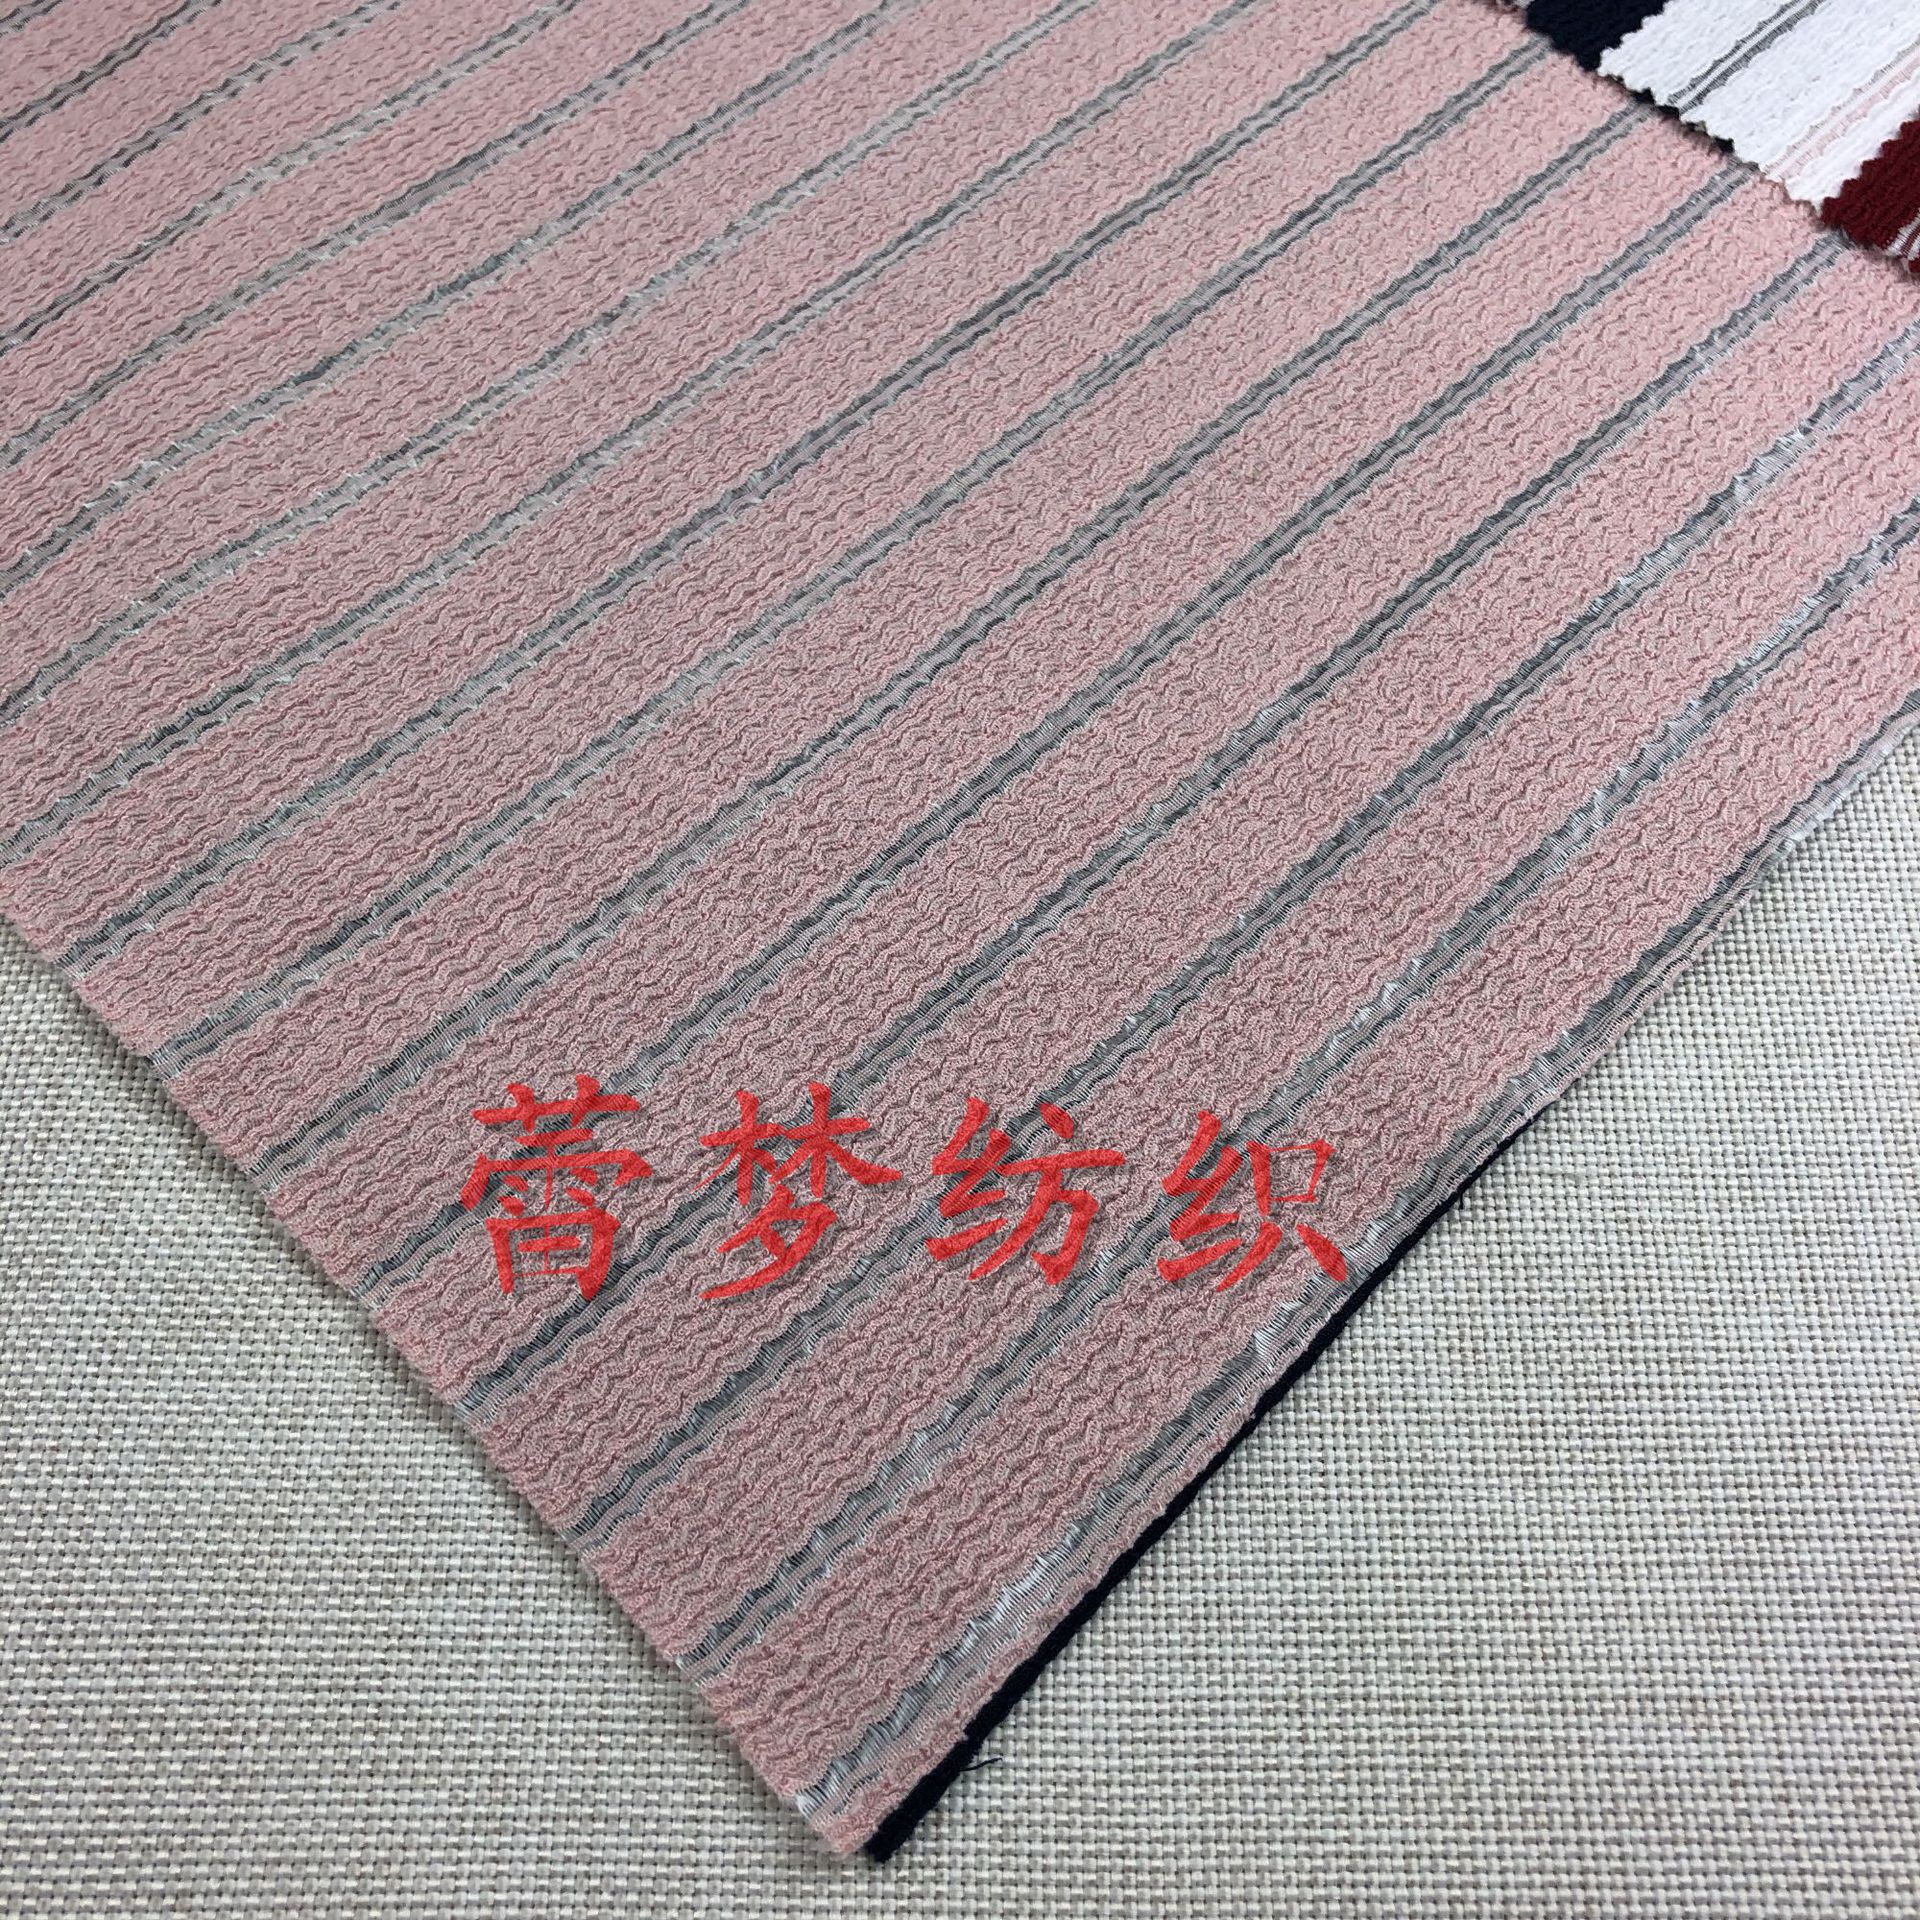 蕾梦纺织